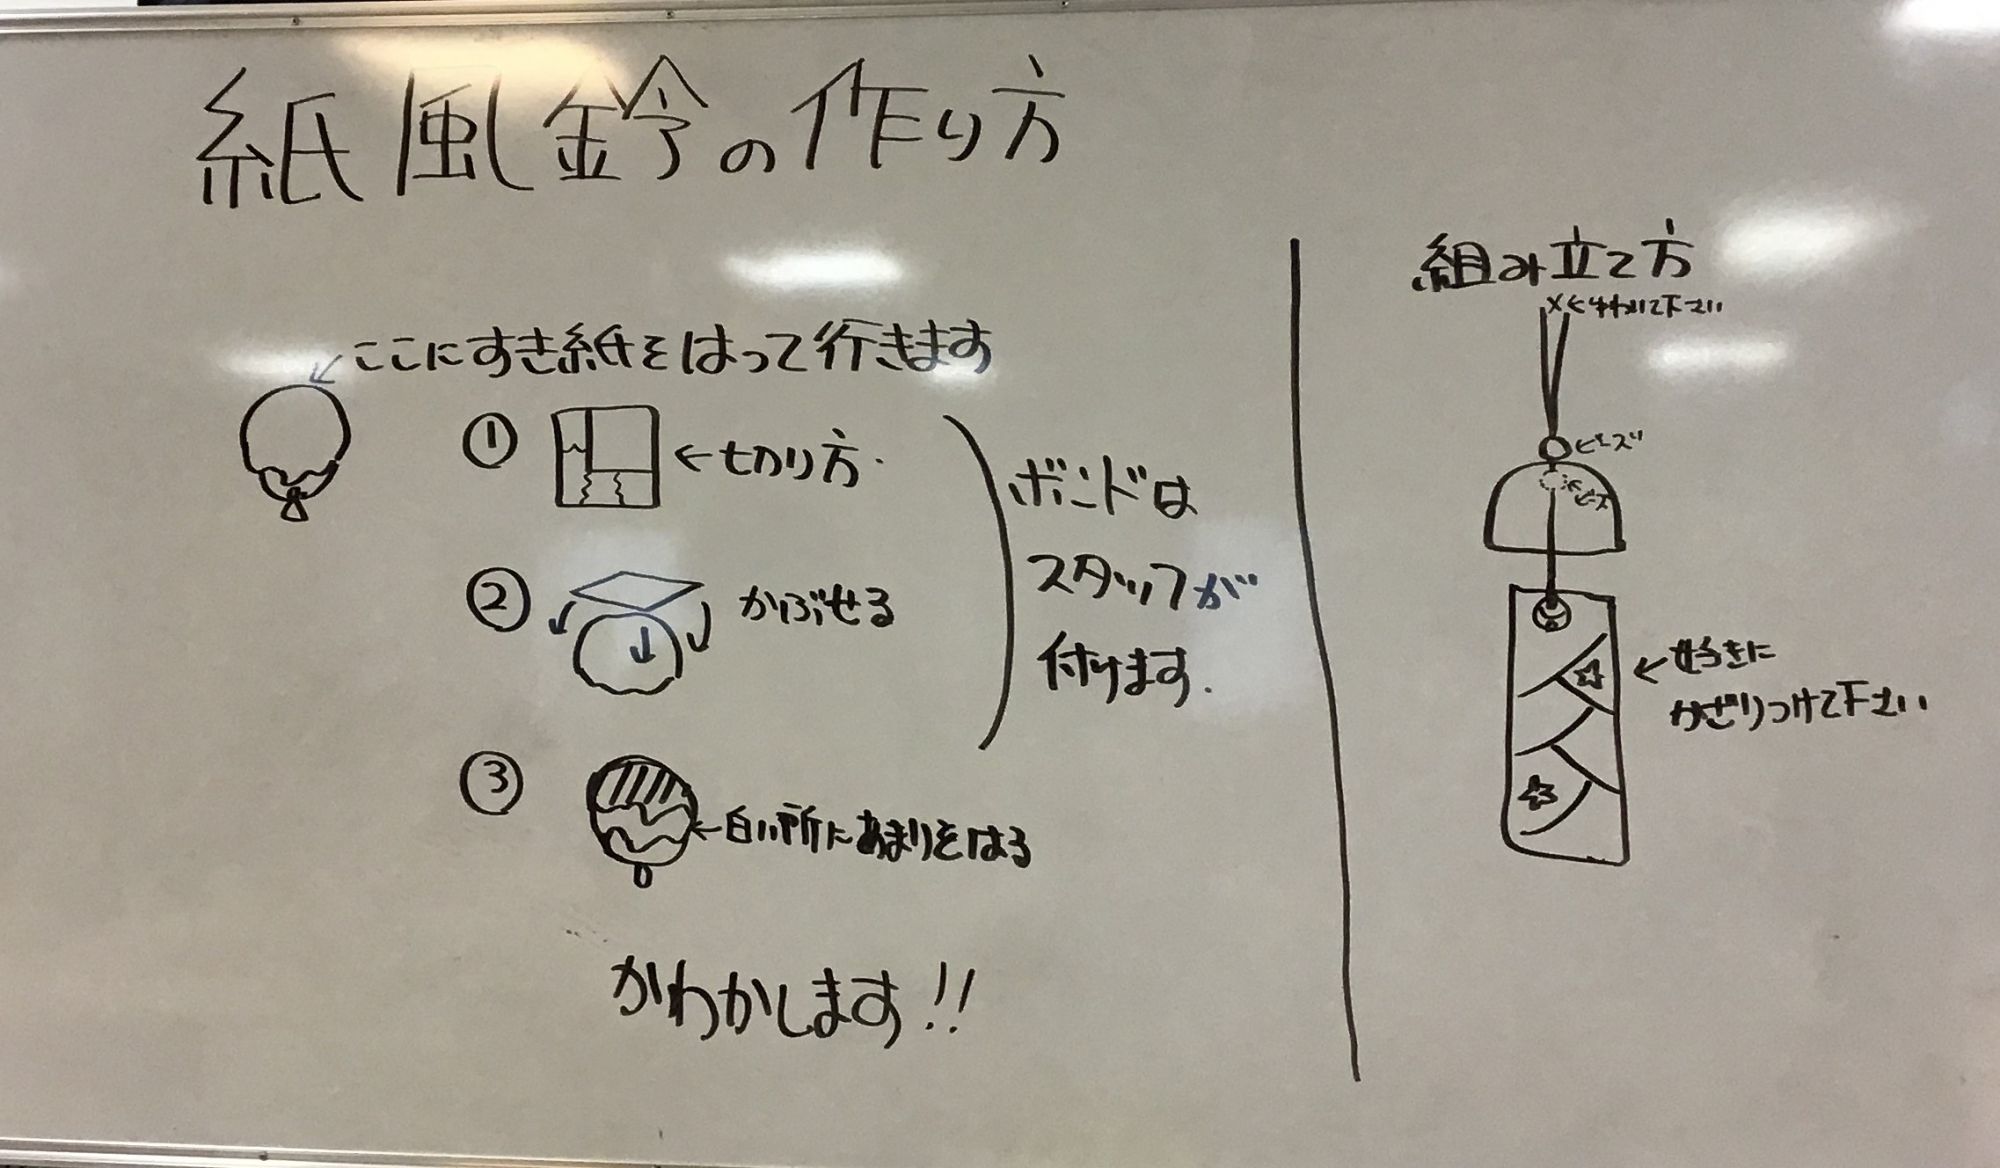 紙風鈴の作り方
ここにすき紙をはって行きます
① ←切り方.
② かぶせる
③ ←白い所にあまりをはる
ボンドは
スタッフが
付けます.
かわかします!!
組み立て方
×←ゆわいて下さい
←ビーズ
←ビーズ
←好きに
かざりつけて下さい